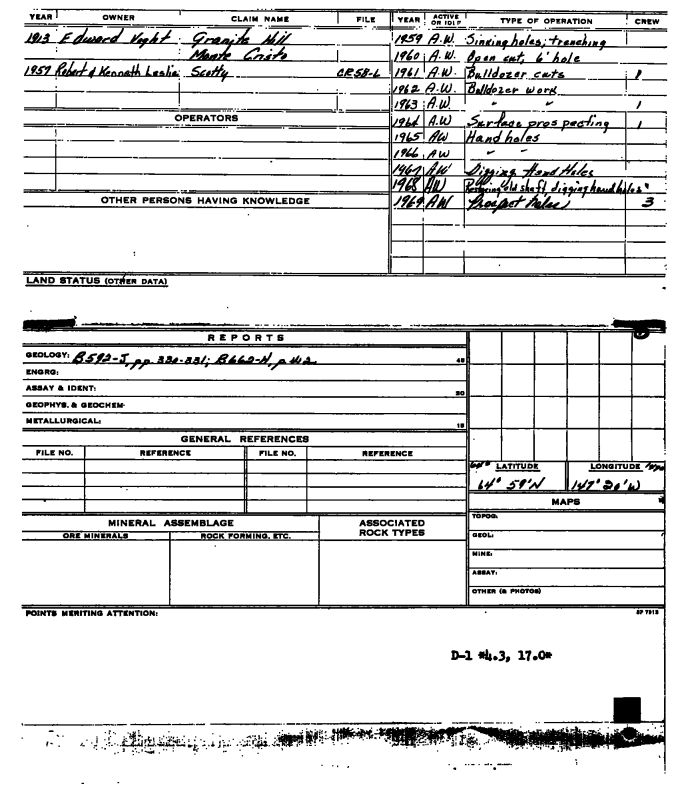 YEAR OWNER CLAIM NAME FILE
1913 Edward Voght Granite Hill
Monte Cristo
1957 Robert & Kenneth Leslie Scotty CR58-L
OPERATORS
OTHER PERSONS HAVING KNOWLEDGE
YEAR ACTIVE OR IDLE TYPE OF OPERATION CREW
1959 A.W. Sinking holes; trenching
1960 A.W. Open cut, 6' hole
1961 A.W. Bulldozer cuts 1
1962 A.W. Bulldozer work
1963 A.W. " " 1
1964 A.W. Surface prospecting 1
1965 AW Hand holes
1966 AW " "
1967 AW Digging Hand Holes
1968 AW old shaft, digging hand holes "
1969 AW Prospect holes 3
LAND STATUS (OTHER DATA)
REPORTS
GEOLOGY: B592-J, pp 330-331; B662-H, p 412 45
ENGRG:
ASSAY & IDENT: 30
GEOPHYS. & GEOCHEM-
METALLURGICAL: 15
GENERAL REFERENCES
FILE NO. REFERENCE FILE NO. REFERENCE
MINERAL ASSEMBLAGE
ORE MINERALS ROCK FORMING, ETC.
ASSOCIATED
ROCK TYPES
LATITUDE LONGITUDE
64° 59'N 147° 20'W
MAPS
TOPOG.
GEOL:
MINE:
ASSAY:
OTHER (& PHOTOS)
POINTS MERITING ATTENTION:
D-1 *4.3, 17.0*